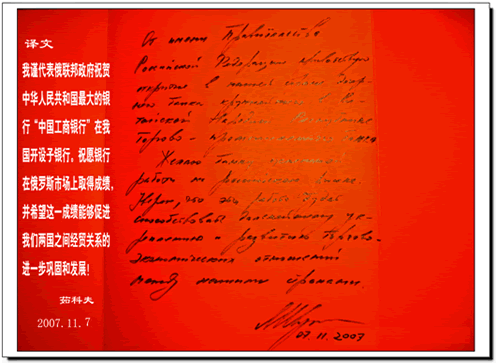 译文
我谨代表俄联邦政府祝贺
中华人民共和国最大的银
行“中国工商银行”在我
国开设子银行。祝愿银行
在俄罗斯市场上取得成绩,
并希望这一成绩能够促进
我们两国之间经贸关系的
进一步巩固和发展!
茹科夫
2007.11.7
От имени Правительства
Российской Федерации приветствую
открытие в нашей стране дочер-
него банка крупнейшего в Ки-
тайской Народной Республике
Торгово-промышленного банка
Желаю банку
работы на российском рынке.
Уверен, что эта работа будет
способствовать дальнейшему ук-
реплению и развитию торгово-
экономических отношений
между нашими странами.
07.11.2007